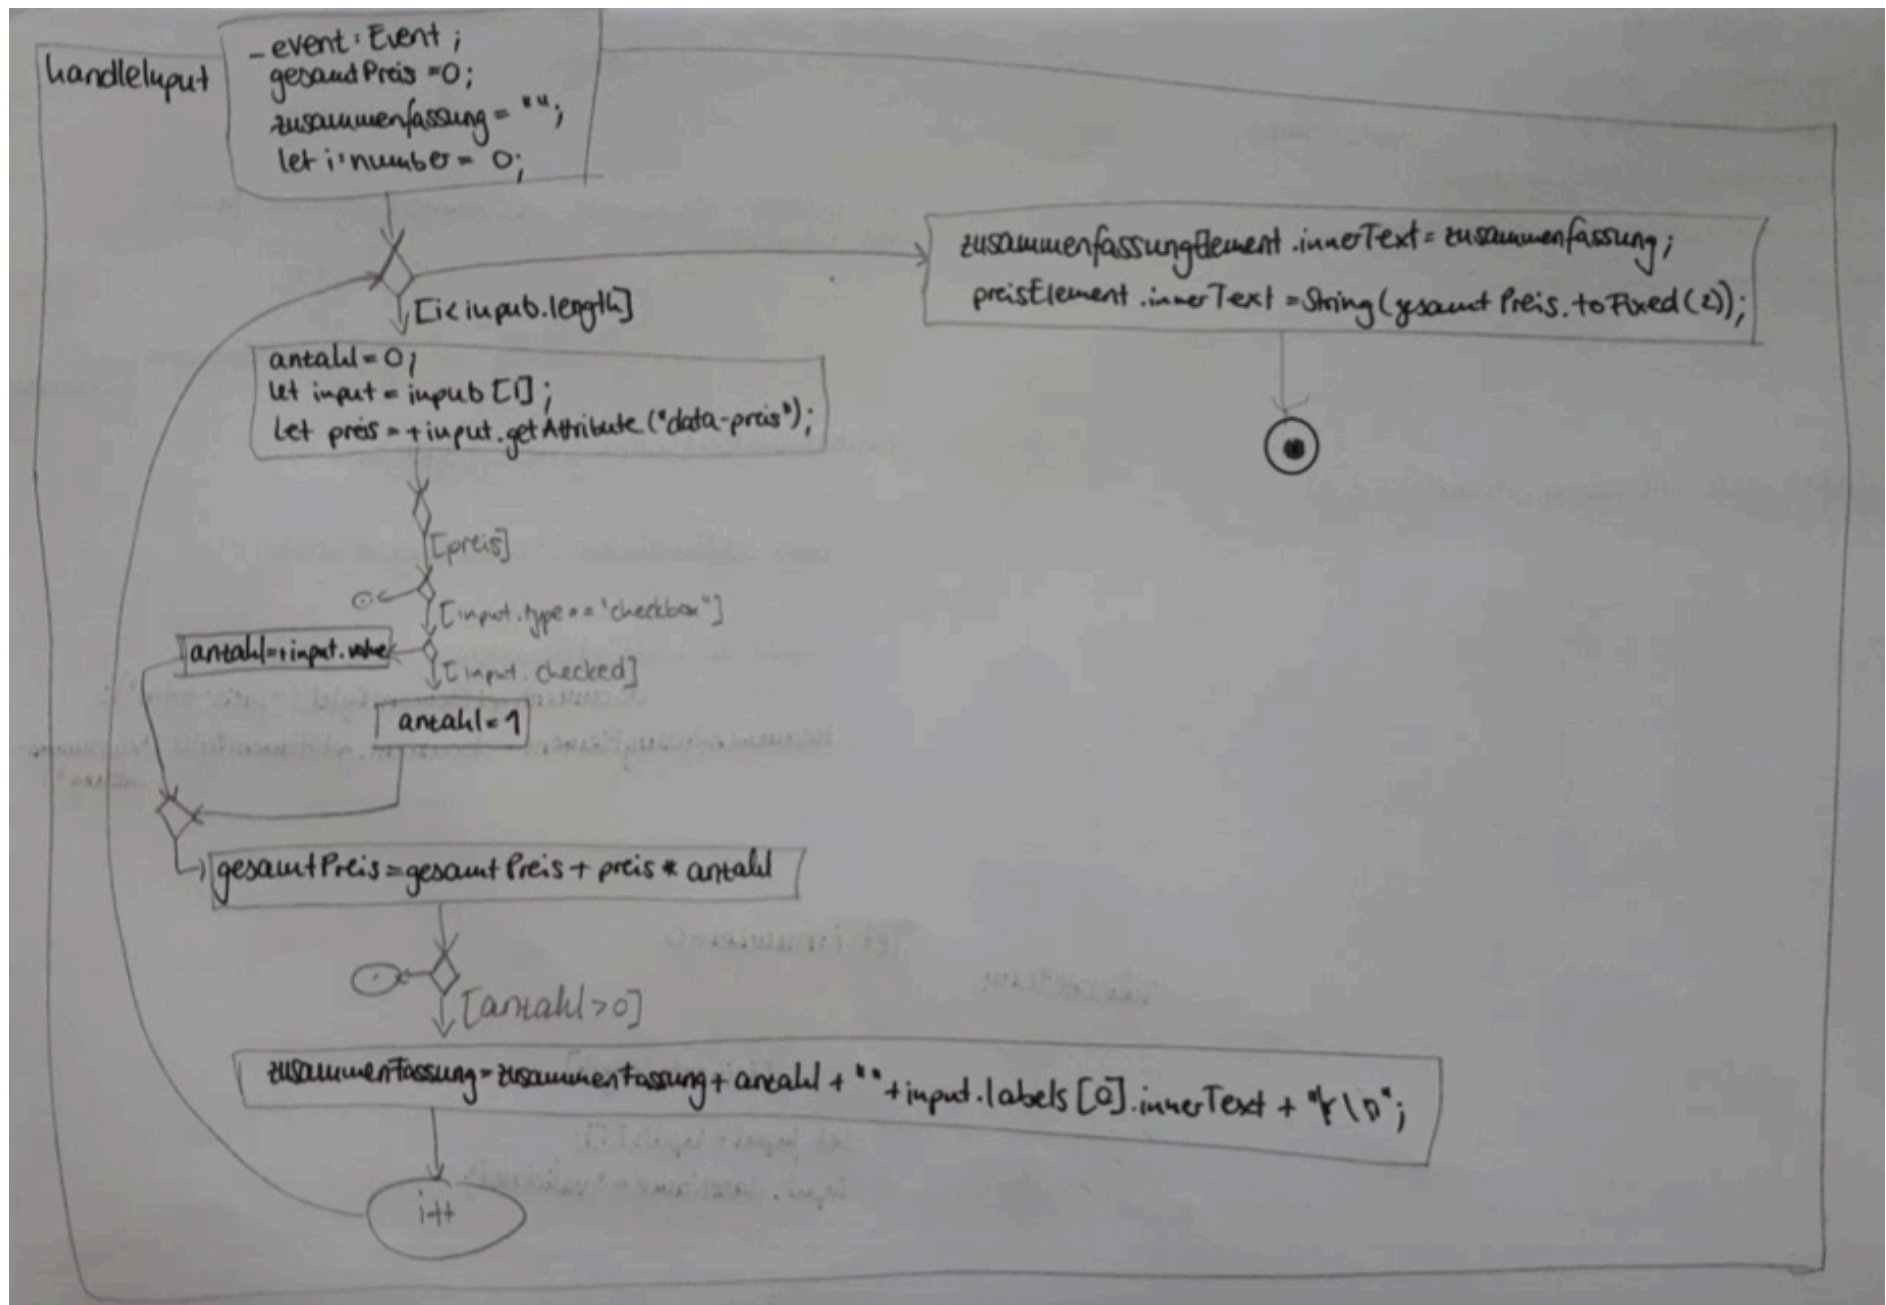 handleInput
_event: Event;
gesamtPreis =0;
zusammenfassung = "";
let i:number = 0;
zusammenfassungElement.innerText = zusammenfassung;
preisElement.innerText = String(gesamtPreis.toFixed(2));
[i< inputs.length]
anzahl = 0;
let input = inputs[i];
let preis = +input.getAttribute("data-preis");
[preis]
[input.type == "checkbox"]
anzahl=+input.value
[input.checked]
anzahl = 1
gesamtPreis = gesamtPreis + preis * anzahl
[anzahl > 0]
zusammenfassung = zusammenfassung + anzahl + " " + input.labels[0].innerText + "\r\n";
i++